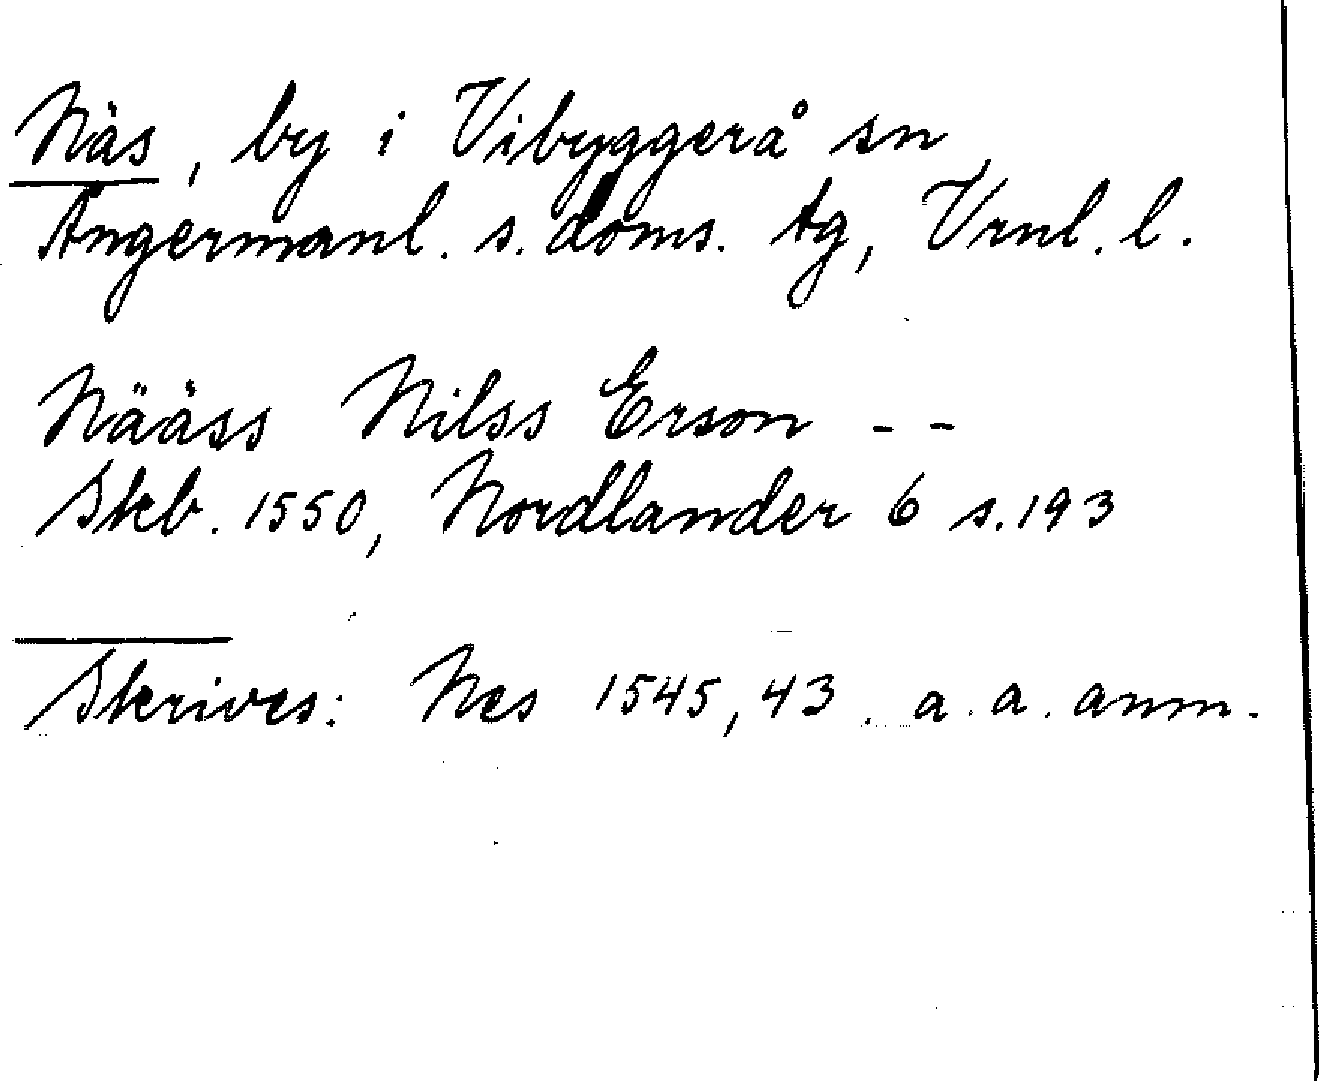 Näs, by i Vibyggerå sn
Ångermanl. s. doms. tg, Vrnl. l.
Nääss Nilss Erson - -
Skb. 1550, Nordlander 6 s. 193
Skrives: Nes 1545, 43. a. a. anm.